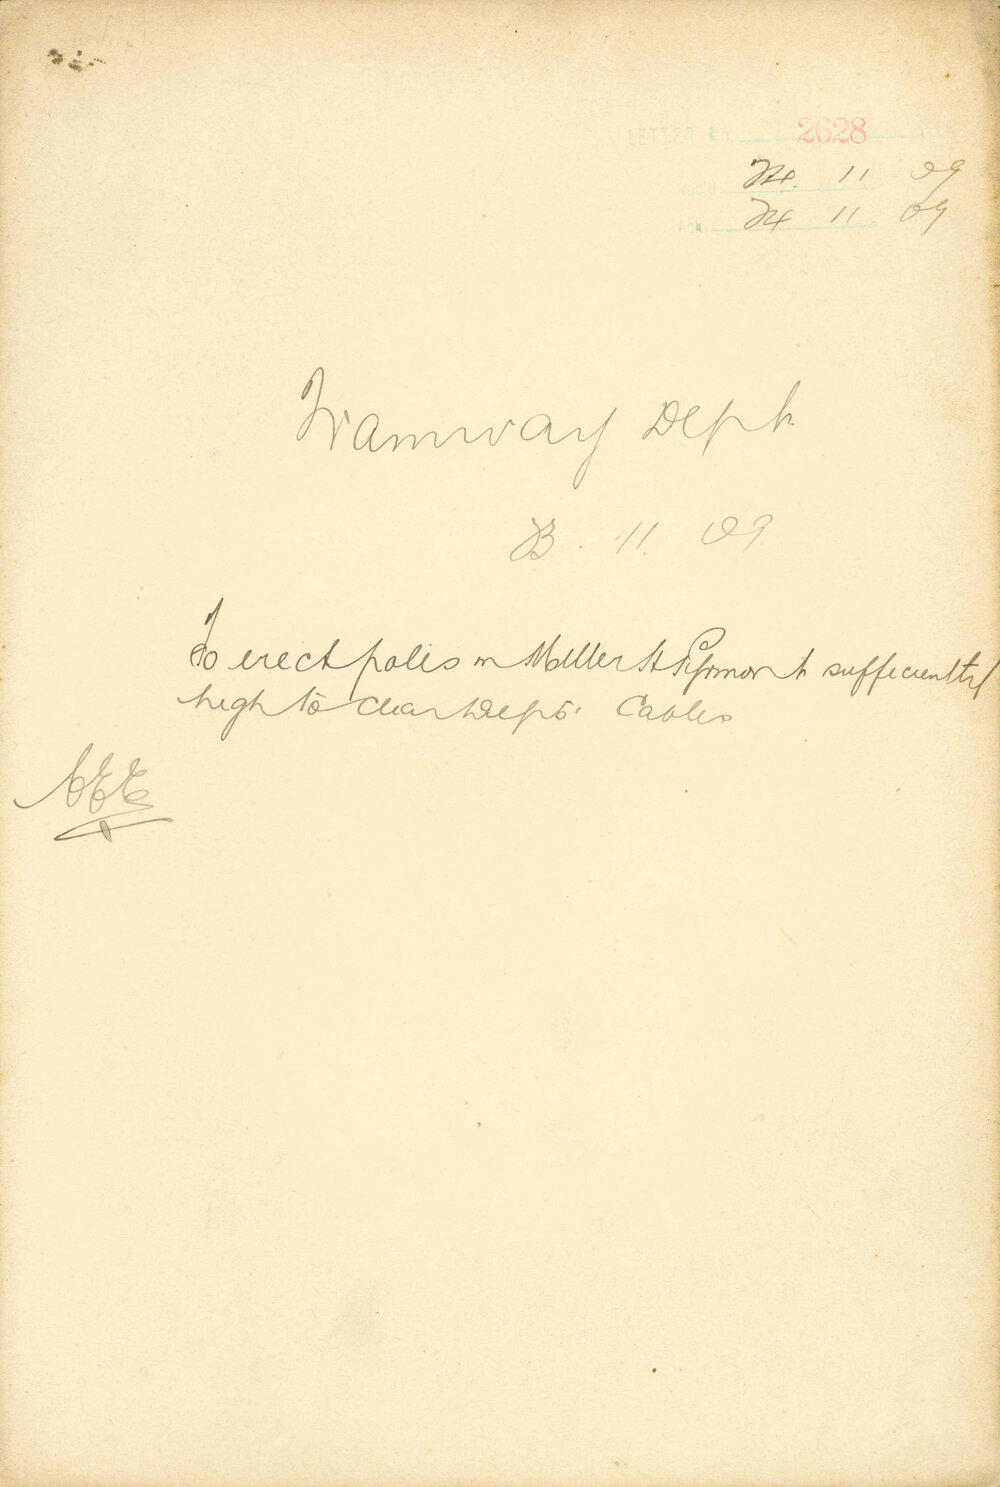 LETTER No. 2628
Rec'd. 24. 11 09
Ack. 24 11 09
Tramway Dept
23. 11. 09
To erect poles in Miller St Pyrmont sufficiently
high to clear Depts. Cables